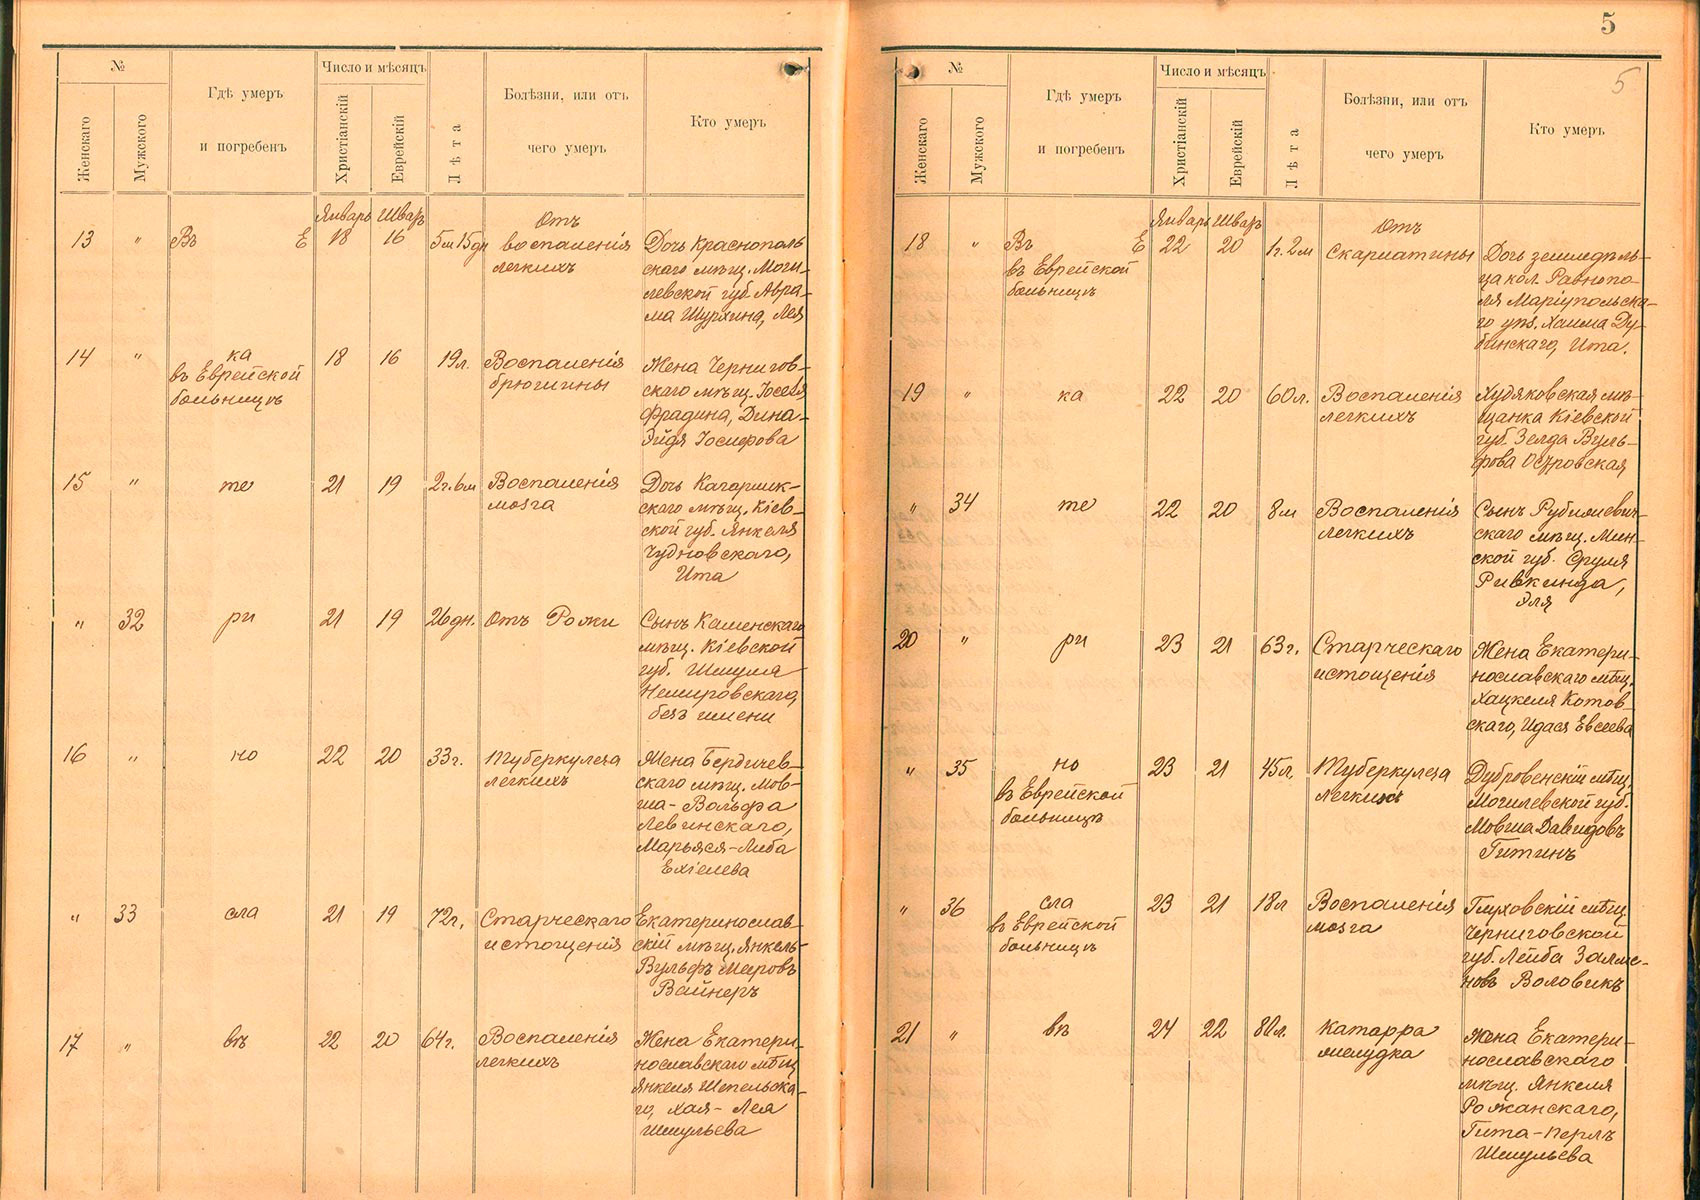 5
№
Женскаго
Мужского
Гдѣ умеръ
и погребенъ
Число и мѣсяцъ
Христіанскій
Еврейскій
Лѣта
Болѣзни, или отъ
чего умеръ
Кто умеръ
Январь Шватъ
13 " Въ Е 18 16 5м 15дн
Отъ
воспаленія
легкихъ
Дочь Краснополь
скаго мѣщ. Моги-
левской губ. Авра-
ма Шурхина, Лея
14 " ка
въ Еврейской
больницѣ
18 16 19л.
Воспаленія
брюшины
Жена Чернигов-
скаго мѣщ. Іоселя
Фрадина, Дина-
Эйдя Іосифова
15 " те 21 19 2г. 6м
Воспаленія
мозга
Дочь Кагарлик-
скаго мѣщ. Кіев-
ской губ. Янкеля
Чудновскаго,
Ита
" 32 ри 21 19 26дн. Отъ Рожи
Сынъ Каменскаго
мѣщ. Кіевской
губ. Шмуля
Немировскаго,
безъ имени
16 " но 22 20 33г.
Туберкулеза
легкихъ
Жена Бердичев-
скаго мѣщ. Мов-
ша-Вольфа
Левинскаго,
Марьяся-Либа
Ехіелева
" 33 сла 21 19 72г.
Старческаго
истощенія
Екатеринослав-
скій мѣщ. Янкель-
Вульфъ Мееровъ
Вайнеръ
17 " въ 22 20 64г.
Воспаленія
легкихъ
Жена Екатери-
нославскаго мѣщ
Янкеля Шепельска-
го, Хая-Лея
Шмульева
5
№
Женскаго
Мужского
Гдѣ умеръ
и погребенъ
Число и мѣсяцъ
Христіанскій
Еврейскій
Лѣта
Болѣзни, или отъ
чего умеръ
Кто умеръ
Январь Шватъ
18 " Въ Е
въ Еврейской
больницѣ
22 20 1г. 2м
Отъ
Скарлатины
Дочь земледѣль-
ца кол. Равнопо-
ля Маріупольска-
го уѣз. Хаима Ду-
бинскаго, Ита.
19 " ка 22 20 60л.
Воспаленія
легкихъ
Ходяковская мѣ-
щанка Кіевской
губ. Зелда Вуль-
фова Островская
" 34 те 22 20 8м
Воспаленія
легкихъ
Сынъ
скаго мѣщ. Мин-
ской губ. Сруля
Ривкинда,
Эля
20 " ри 23 21 63г.
Старческаго
истощенія
Жена Екатери-
нославскаго мѣщ.
Хацкеля Котов-
скаго, Идася Евсеева
" 35 но
въ Еврейской
больницѣ
23 21 45л.
Туберкулеза
легкихъ
Дубровенскій мѣщ.
Могилевской губ.
Мовша Давидовъ
Гитинъ
" 36 сла
въ Еврейской
больницѣ
23 21 18л
Воспаленія
мозга
Глуховскій мѣщ.
Черниговской
губ. Лейба Залме-
новъ Воловикъ
21 " въ 24 22 80л.
Катарра
желудка
Жена Екатери-
нославскаго
мѣщ. Янкеля
Рожанскаго,
Гита-Перлъ
Шмульева